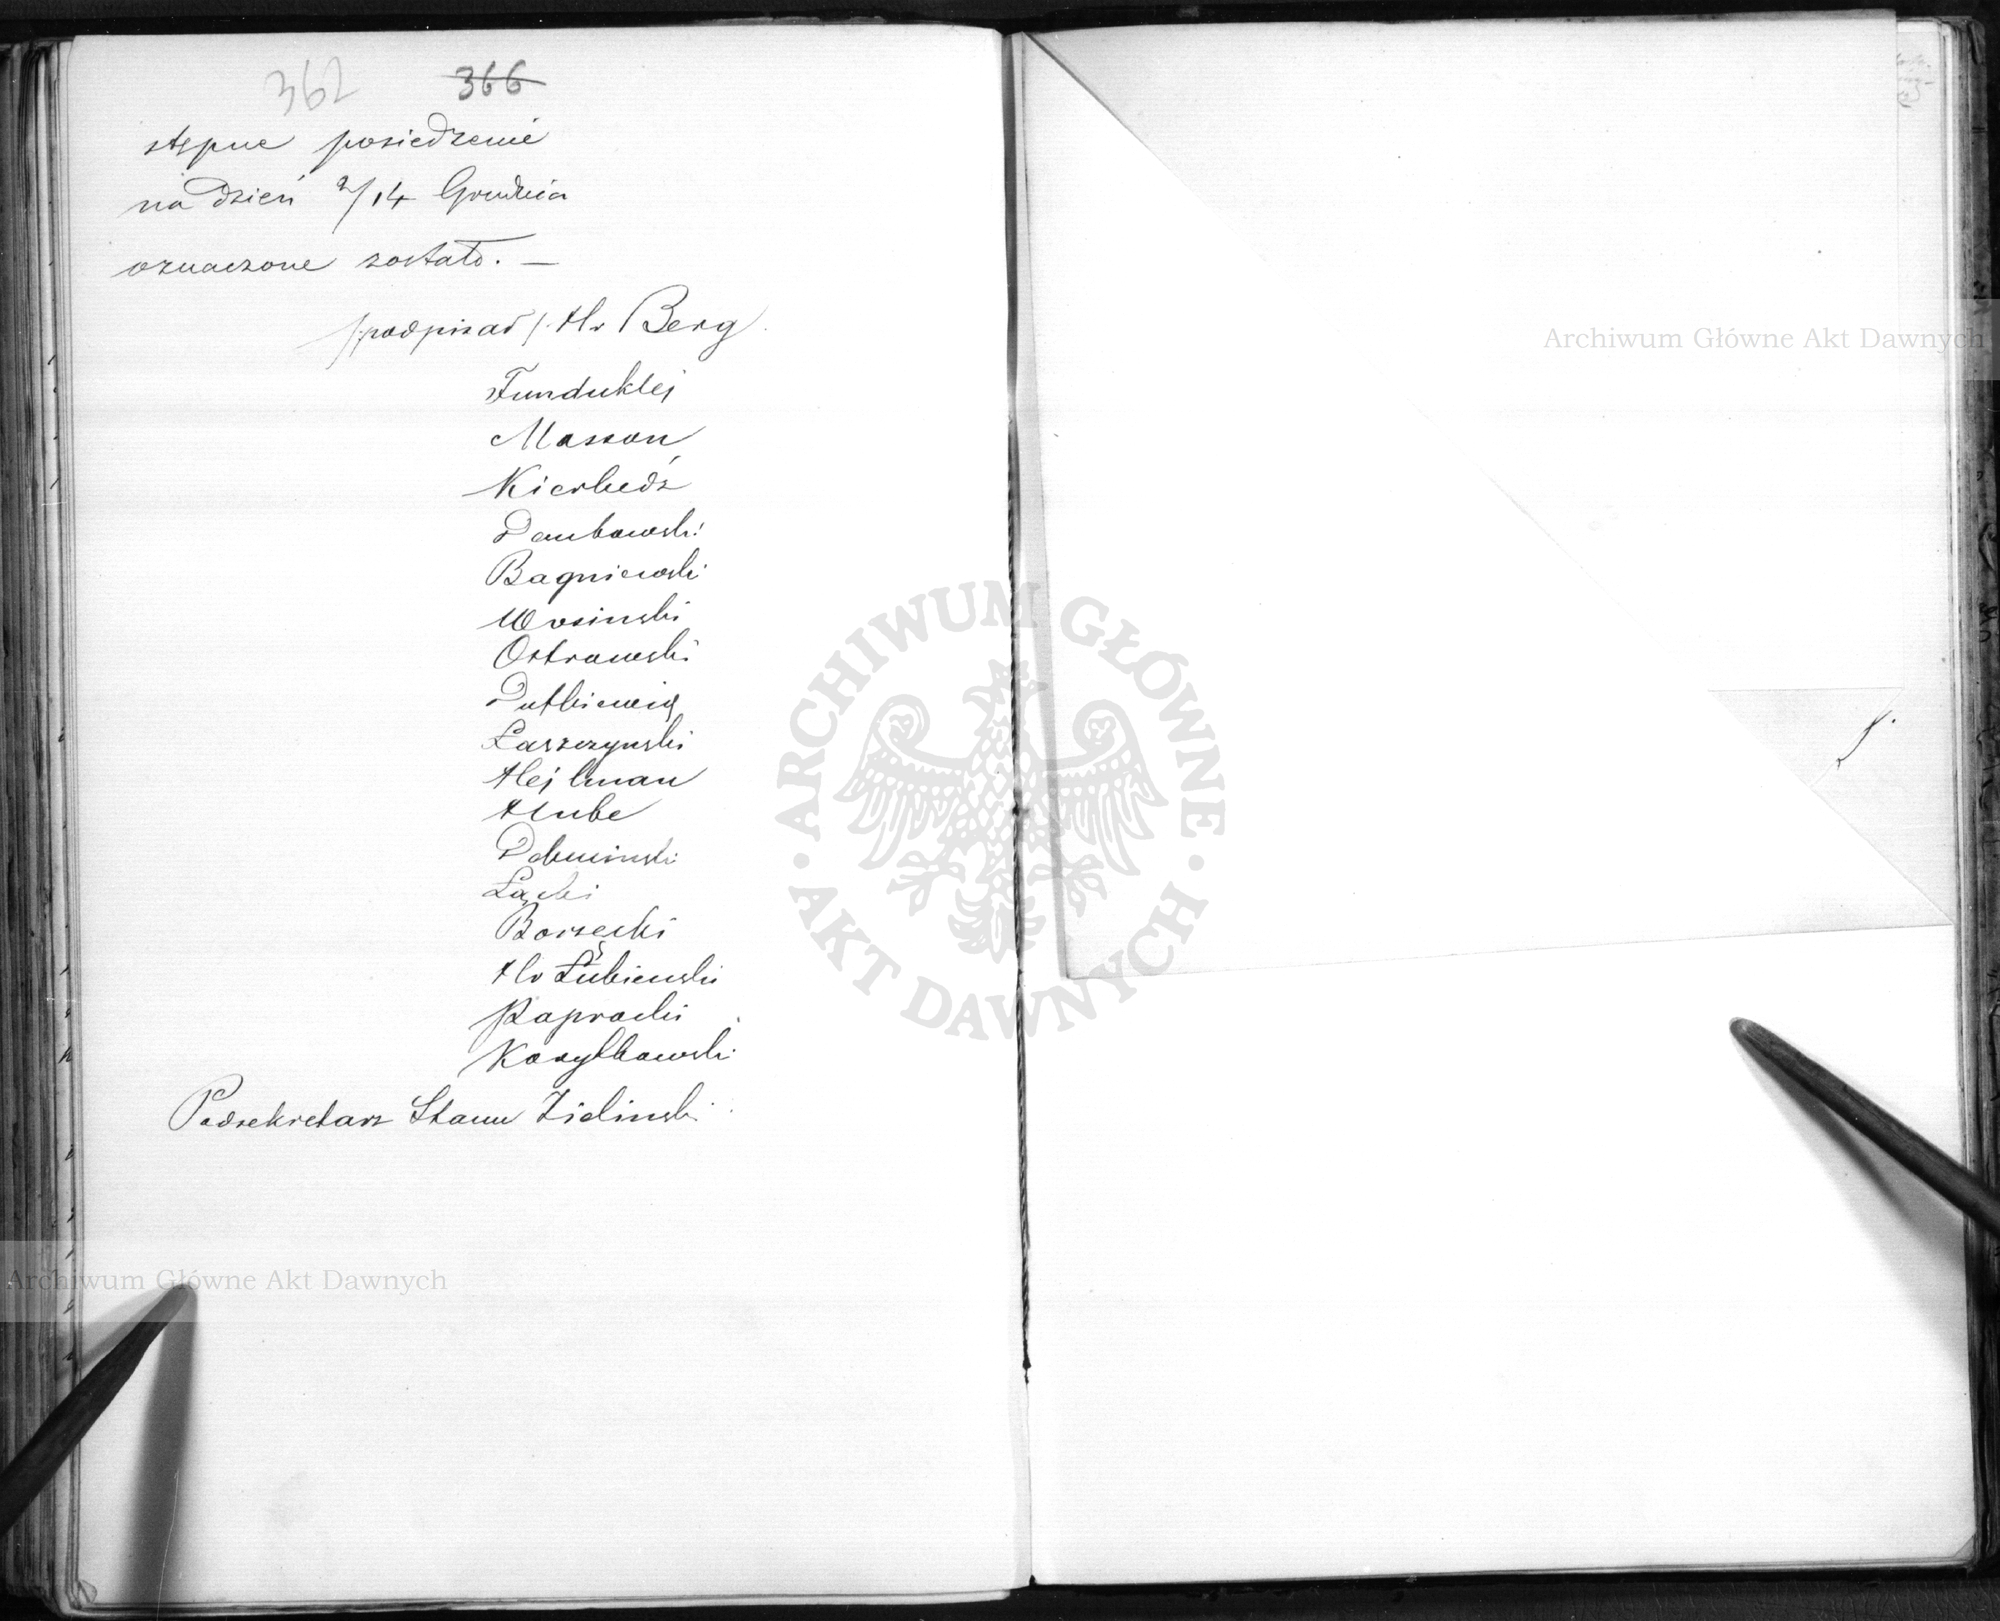 362 366
stępne posiedzenie
na dzień 2/14 Grudnia
oznaczone zostało. —
/:podpisał/: Hr Berg
Funduklej
Masson
Kierbedź
Dembowski
Bagniewski
Wosinski
Ostrowski
Dutkiewicz
Łaszczynski
Hejlman
Hube
Łącki
Borzęcki
Hr Łubienski
Paprocki
Korytkowski
Podsekretarz Stanu Zielinski
Archiwum Główne Akt Dawnych
ARCHIWUM GŁÓWNE
· AKT DAWNYCH ·
Archiwum Główne Akt Dawnych